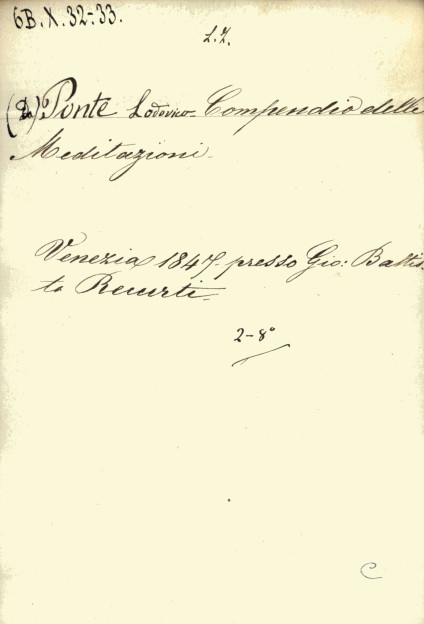 6B.X.32-33.
L.Z.
(Da) Ponte Lodovico - Compendio delle
Meditazioni.
Venezia 1847. presso Gio: Battis-
ta Recurti.
2-8°
C